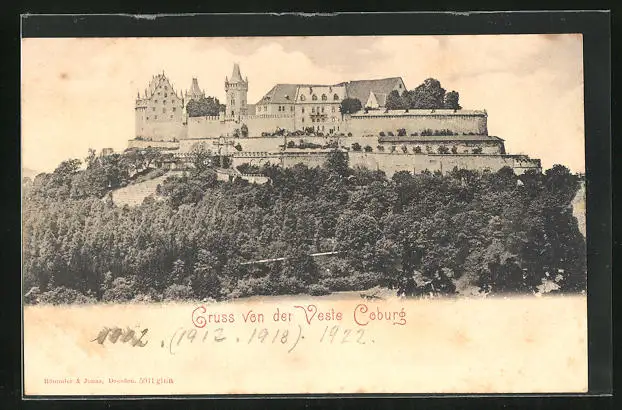 Gruss von der Veste Coburg
1902. (1912. 1918). 1922.
Römmler & Jonas, Dresden. 5911 glzn